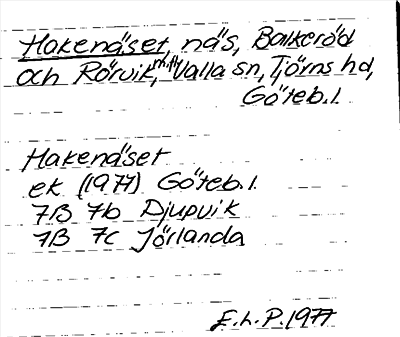 Hakenäset, näs, Balkeröd
och Rörvik, m.fl. Valla sn, Tjörns hd,
Göteb.l.
Hakenäset
ek (1977) Göteb.l.
7B 7b Djupvik
7B 7c Jörlanda
E.h.P.1977